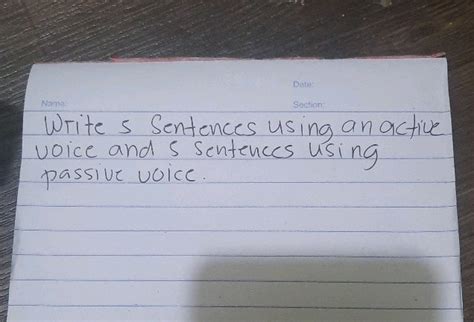 Date:
Name: Section:
Write 5 Sentences using an active
voice and 5 Sentences using
passive voice.